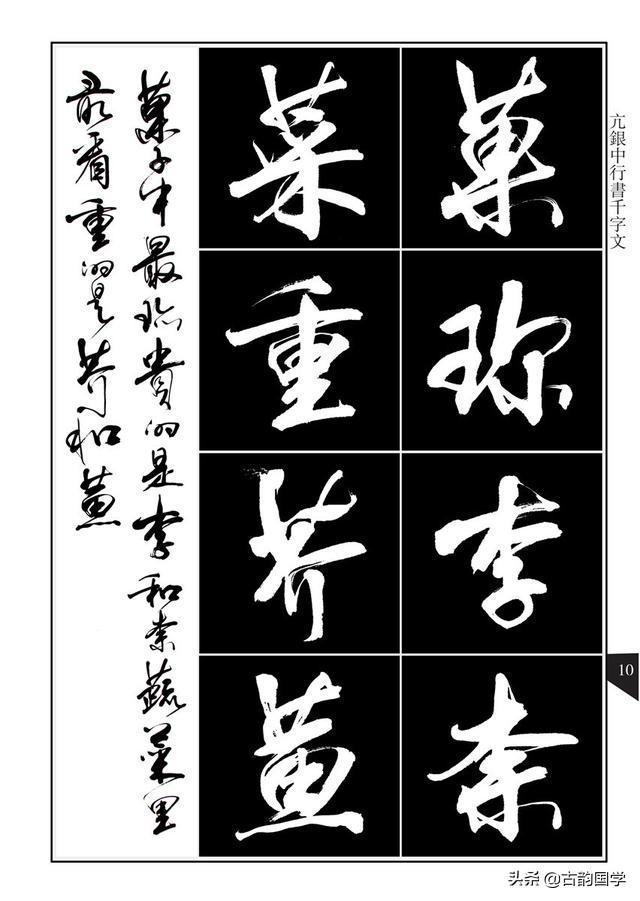 亢銀中行書千字文
菓珍李柰
菜重芥薑
菓子中最珍貴的是李和柰蔬菜里
最看重的是芥和薑
10
头条 @古韵国学